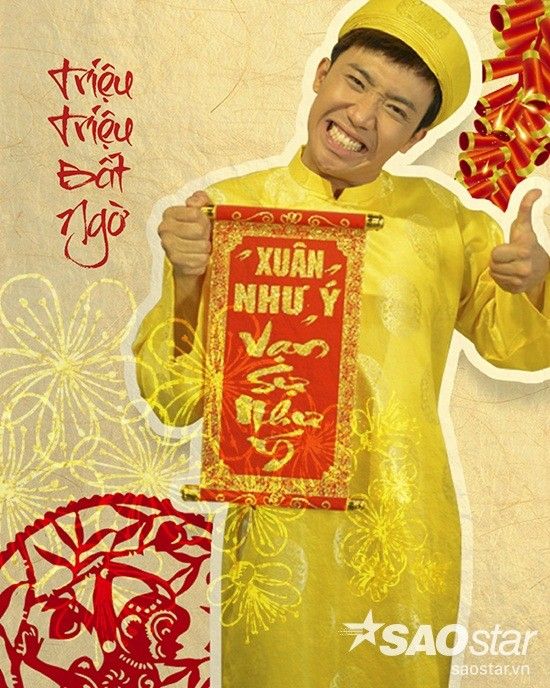 Triệu
Triệu
Bất
Ngờ
XUÂN
NHƯ Ý
Vạn
Sự
Như
Ý
SAOstar
saostar.vn